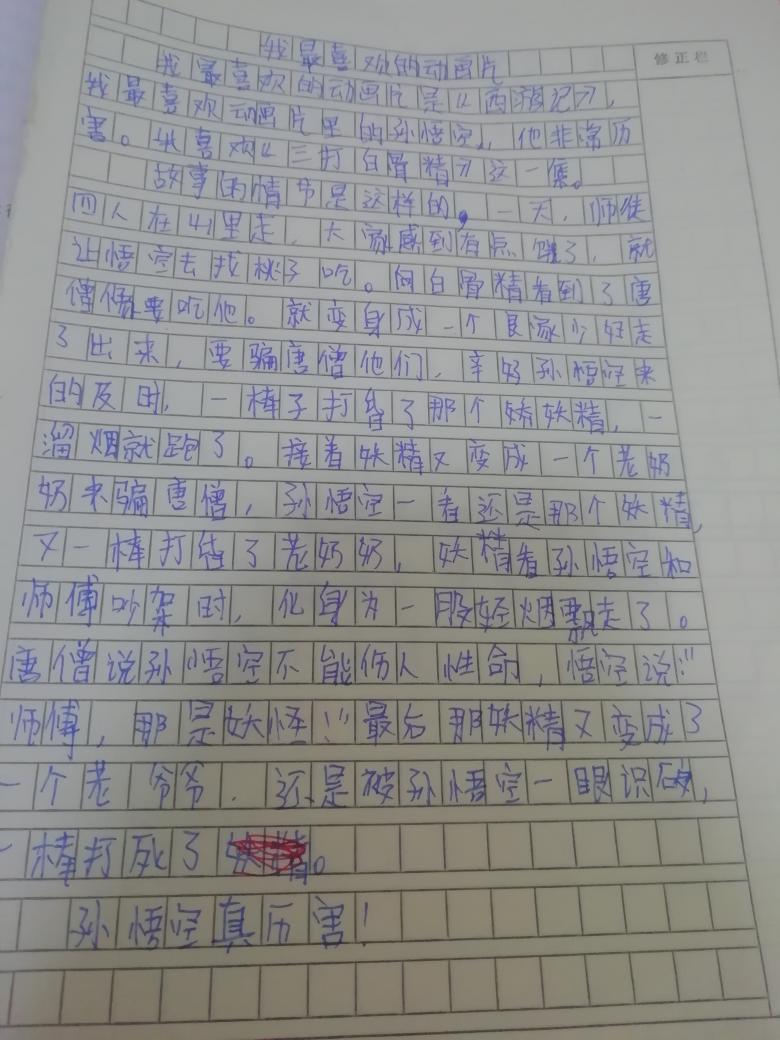 修正栏
我最喜欢的动画片
我最喜欢的动画片是《西游记》,
我最喜欢动画片里的孙悟空,他非常历
害。我喜欢《三打白骨精》这一集。
故事的情节是这样的。一天,师徒
四人在山里走,大家感到有点饿了,就
让悟空去找桃子吃。向白骨精看到了唐
僧便要吃他。就变身成一个良家少妇走
了出来,要骗唐僧他们,幸好孙悟空来
的及时,一棒子打昏了那个妖精,一
溜烟就跑了。接着妖精又变成一个老奶
奶来骗唐僧,孙悟空一看还是那个妖精,
又一棒打在了老奶奶,妖精看孙悟空和
师傅吵架时,化身为一股轻烟飘走了。
唐僧说孙悟空不能伤人性命,悟空说:"
师傅,那是妖怪!"最后那妖精又变成了
一个老爷爷.还是被孙悟空一眼识破,
一棒打死了。
孙悟空真历害!